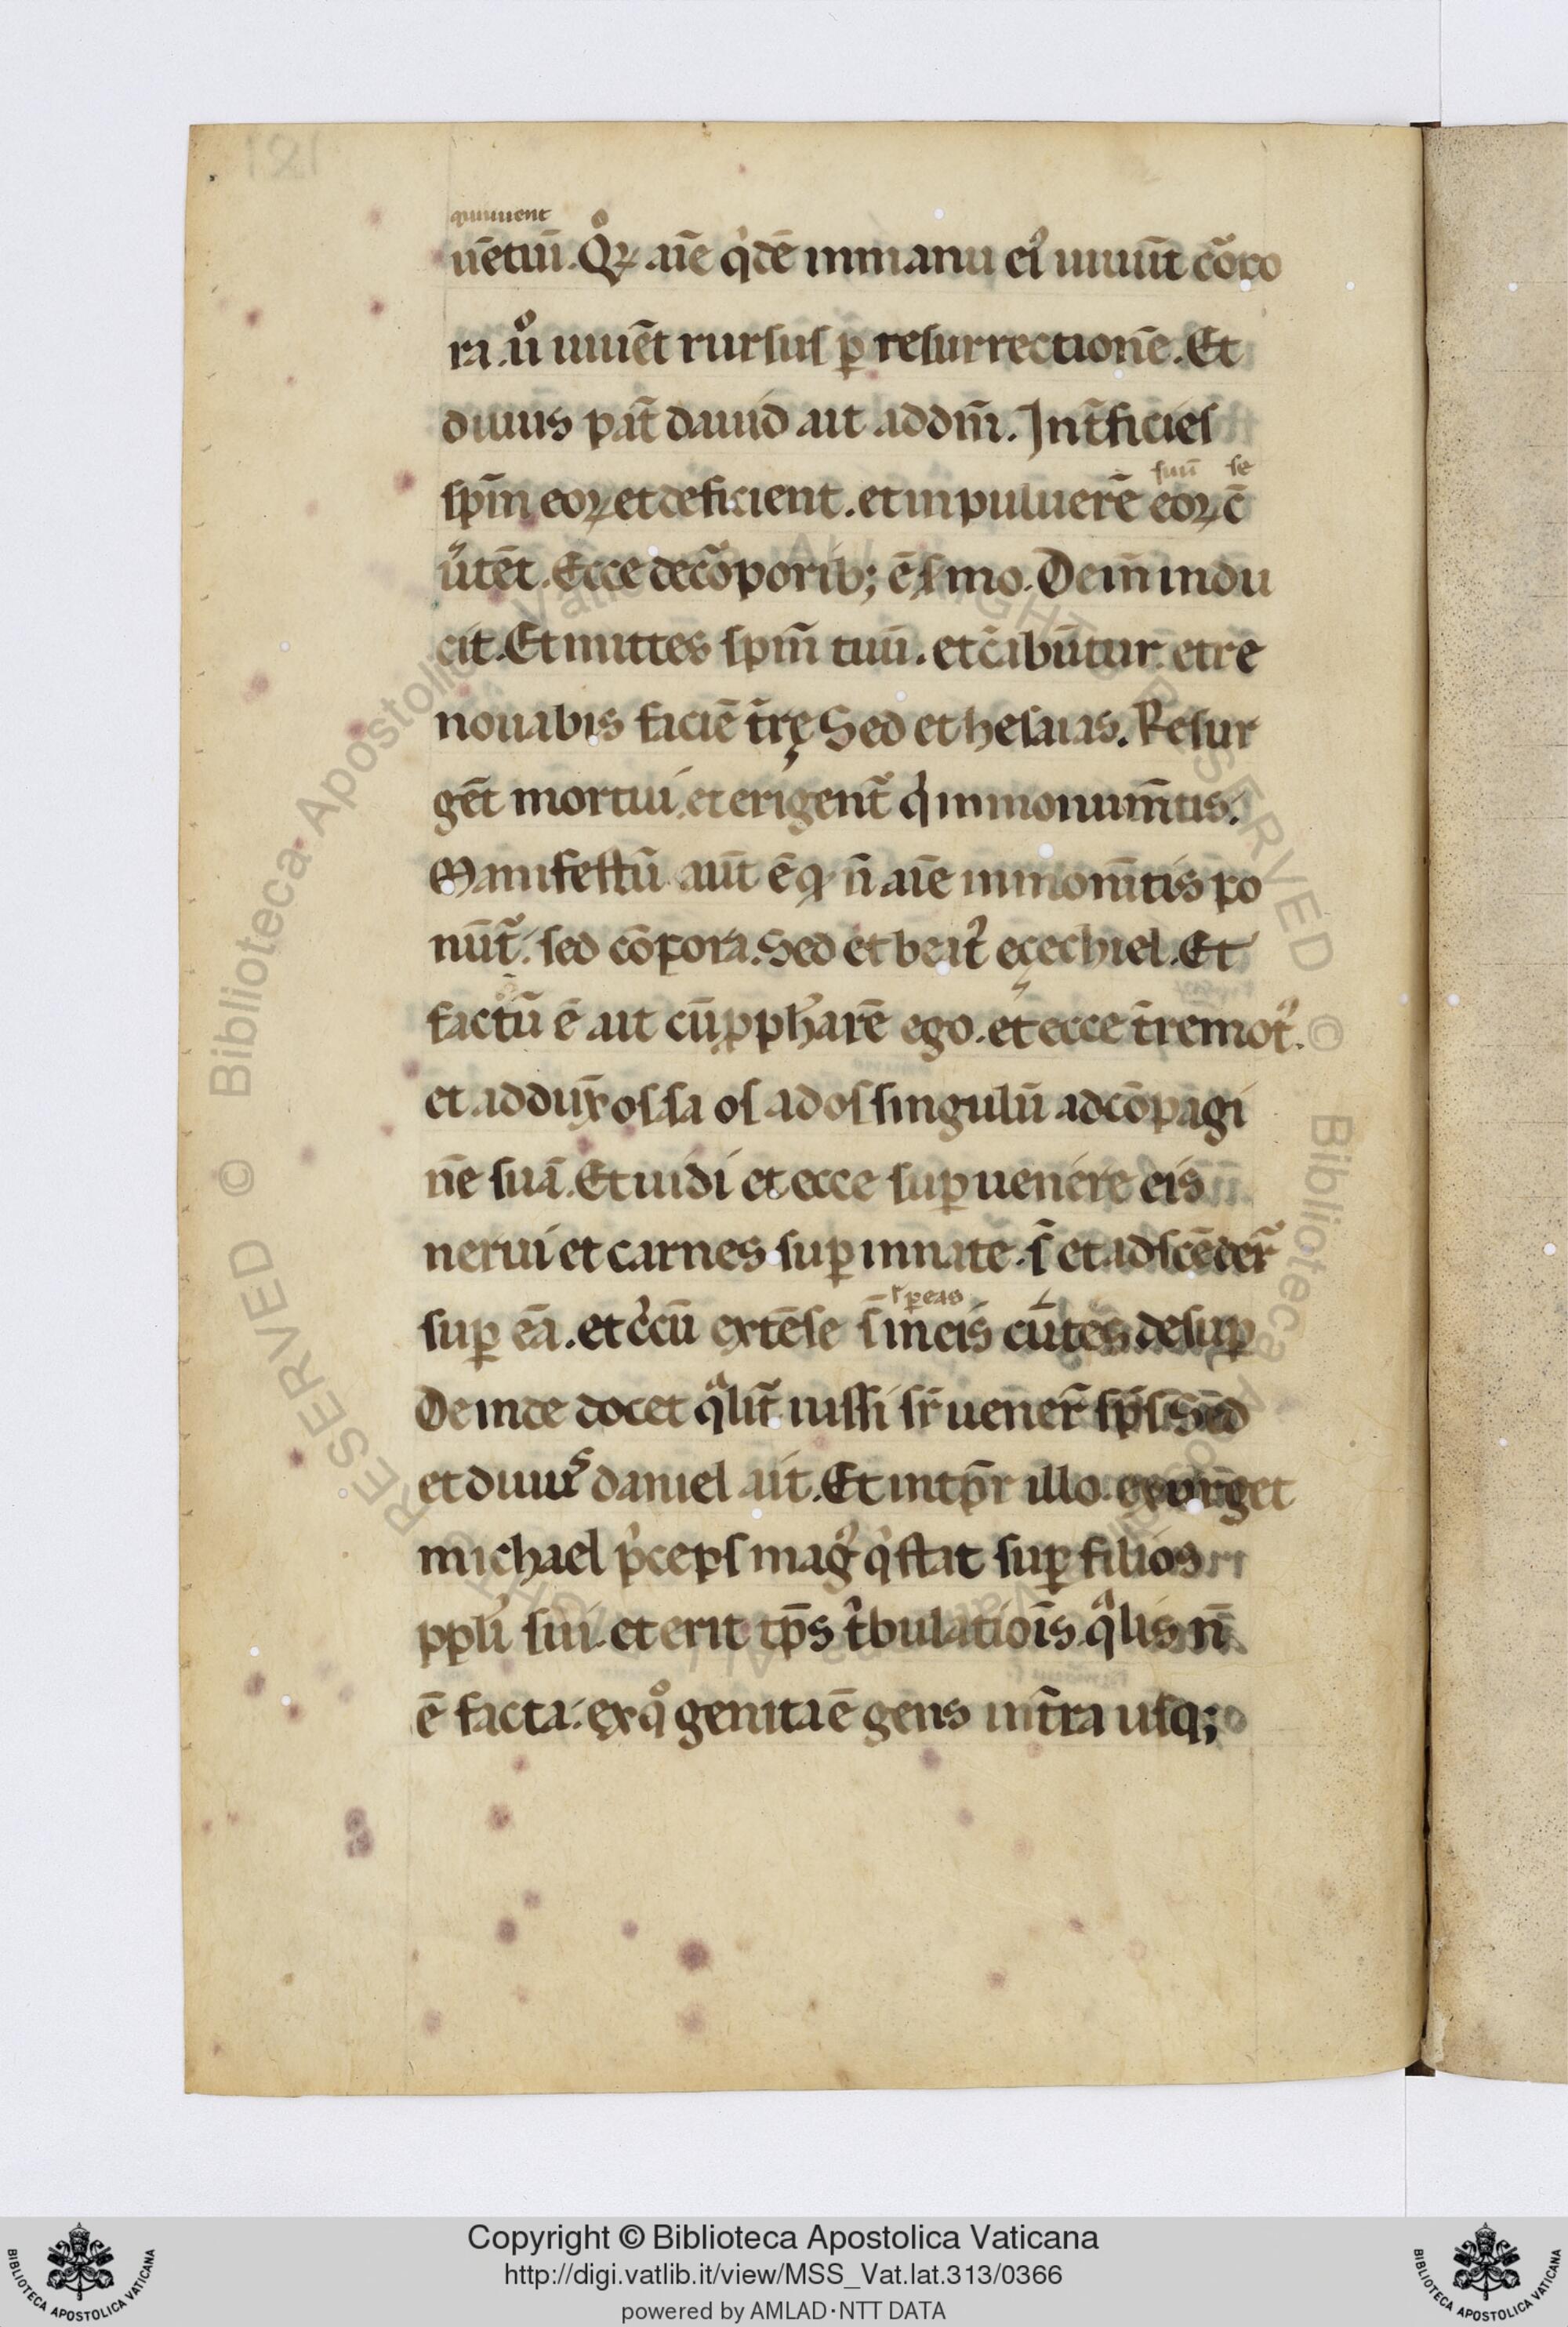 quiuuent
uētiū. Qͦꝝ aīe qͥdē inmanu eiꝰ uiuūt cōꝛꝑo
ra. ūͦ uiuēt rursus p̄ resurrectionē. Et
diuus pat̄ dauid ait addm̄. Int̄ficies
suū se
sp̄m eoꝝ et deficient. et in puluerē eoꝝ c̄
ūtēt. Ecce decōporib; ē s̄mo. Dein̄ indu
cit. Et mittes sp̄m tuū. et c̄abūtur. et re
nouabis faciē t̄rę Sed et hesaias. Resur
gēt mortui. et erigent̄ qͥ inmonum̄tis.
Manifestū aūt ē q n̄ aīe inmonm̄tis po
nūt̄. sed cōpora. Sed et beatꝰ ezechiel. Et
factū ē ait cū ꝓpharē ego. et ecce t̄remotꝰ.
et addux̄ ossa os ad os singulū adcōpagi
nē suā. Et uidi et ecce suꝑuenere eis
nerui et carnes suꝑ innate. s̄ et adscēder̄
s̄ꝑeas
suꝑ eā. et cͥcū extēse s̄ in eis cūtes desuꝑ
Deinde docet qͣlit̄ iussi sr̄ uener̄ sp̄s Sed
et diuuˢ daniel ait. Et in tp̄r illo exurget
michael pͥceps magꝰ qͥ stat suꝑ filios
ppl̄i sui. et erit tp̄s tͥbulatiōis qͣlis n̄
ē facta. ex qͦ genita ē gens int̄ra usq;
Copyright © Biblioteca Apostolica Vaticana
http://digi.vatlib.it/view/MSS_Vat.lat.313/0366
powered by AMLAD·NTT DATA
BIBLIOTECA APOSTOLICA VATICANA
BIBLIOTECA APOSTOLICA VATICANA